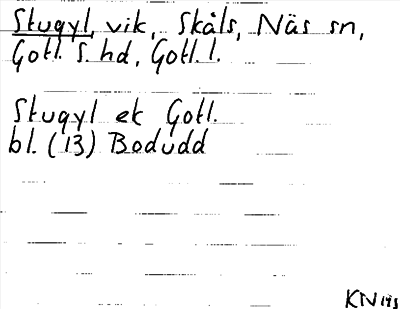 Stugyl, vik, Skåls, Näs sn,
Gotl. S. hd, Gotl. l.
Stugyl ek Gotl.
bl. (13) Bodudd